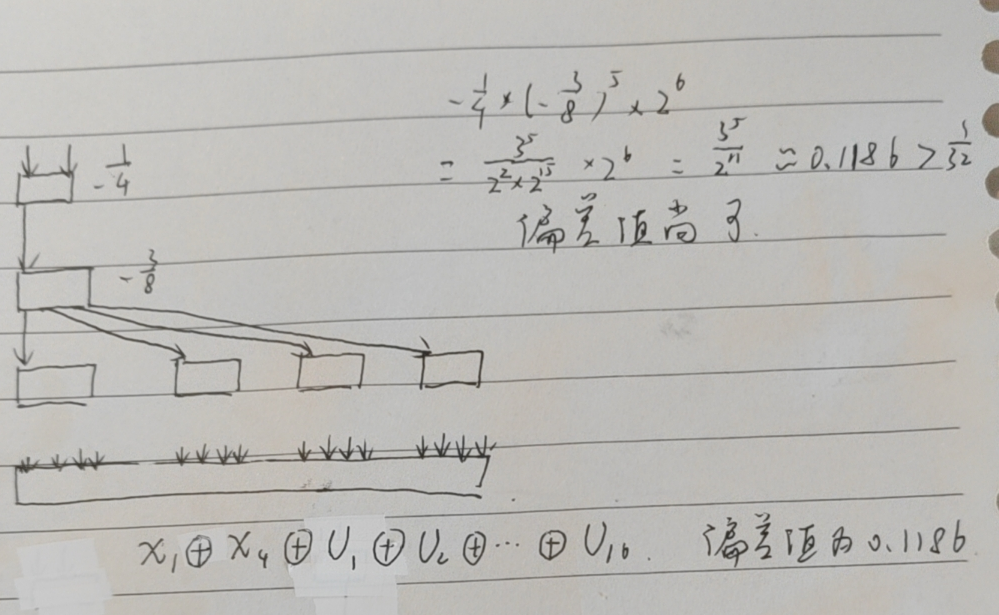 -1/4 × (-3/8)^5 × 2^6
-1/4
= 3^5/(2^2×2^15) × 2^6 = 3^5/2^11 ≈ 0.1186 > 1/32
偏差值尚可.
-3/8
x₁ ⊕ x₄ ⊕ U₁ ⊕ U₂ ⊕ ··· ⊕ U₁₆. 偏差值为 0.1186